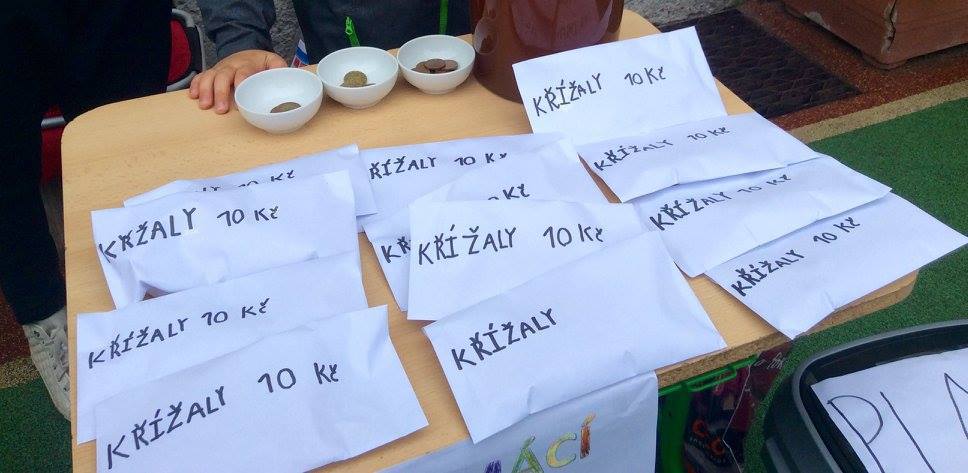 KŘÍŽALY 10 Kč
KŘÍŽALY 10 Kč
KŘÍŽALY 10 Kč
KŘÍŽALY 10 Kč
10 Kč
KŘŽALY 10 Kč
KŘÍŽALY 10 Kč
KŘÍŽALY 10 Kč
KŘÍŽALY 10 Kč
KŘÍŽALY 10 Kč
KŘÍŽALY
KŘÍŽALY 10 Kč
ÁCÍ